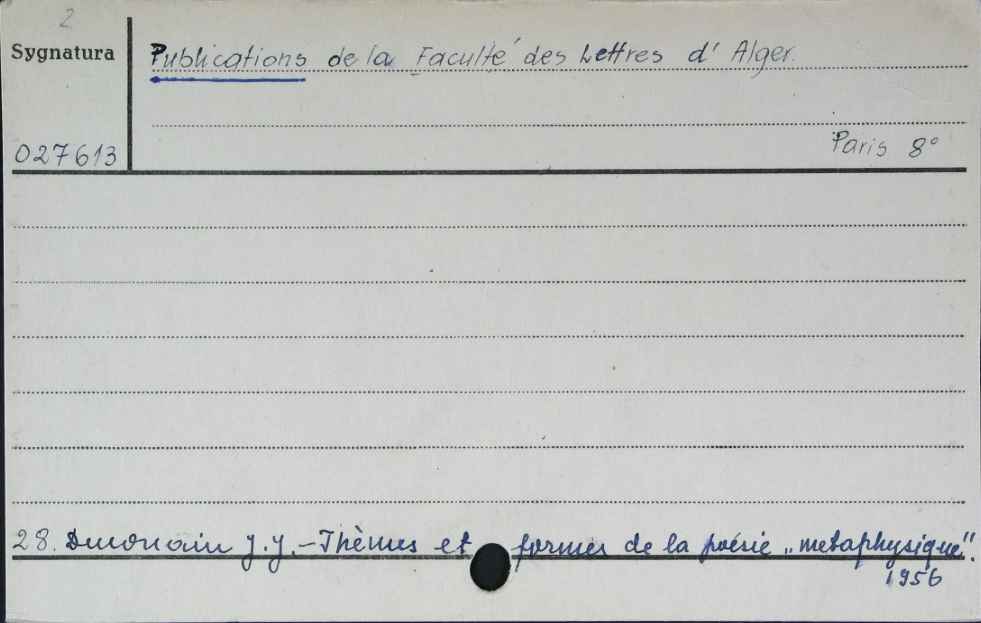 2
Sygnatura
Publications de la Faculté des Lettres d' Alger.
027613
Paris 8°
28. J.J. - Thèmes et formes de la poésie „metaphysique".
1956